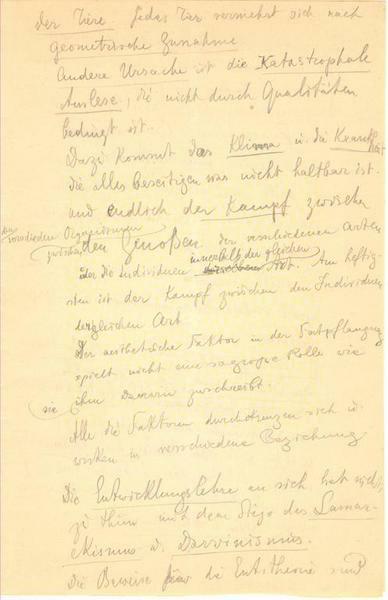 der Tiere. Jedes Tier vermehrt sich nach
geometrische Zunahme
Andere Ursache ist die Katastrophale
Auslese, die nicht durch Qualitäten
bedingt ist.
Dazu kommt das Klima u. die Krankheit
die alles beseitigen was nicht haltbar ist.
und endlich der Kampf zwischen
verschiedenen Organismen
zwischen den Genoßen der verschiedenen Arten
innerhalb der gleichen
oder die Individuen Art. Am heftig-
sten ist der Kampf zwischen den Individuen
dergleichen Art
Der aesthetische Faktor in der Fortpflanzung
spielt nicht eine so grosse Rolle wie
sie ihm Darwin zuschreibt.
Alle die Faktoren durchkreuzen sich u.
wirken in verschiedene Beziehung
Die Entwicklungslehre an sich hat nichts
zu thun mit dem Siege des Lamar-
kismus u. Darwinismus.
Die Beweise für die Entstheorie sind